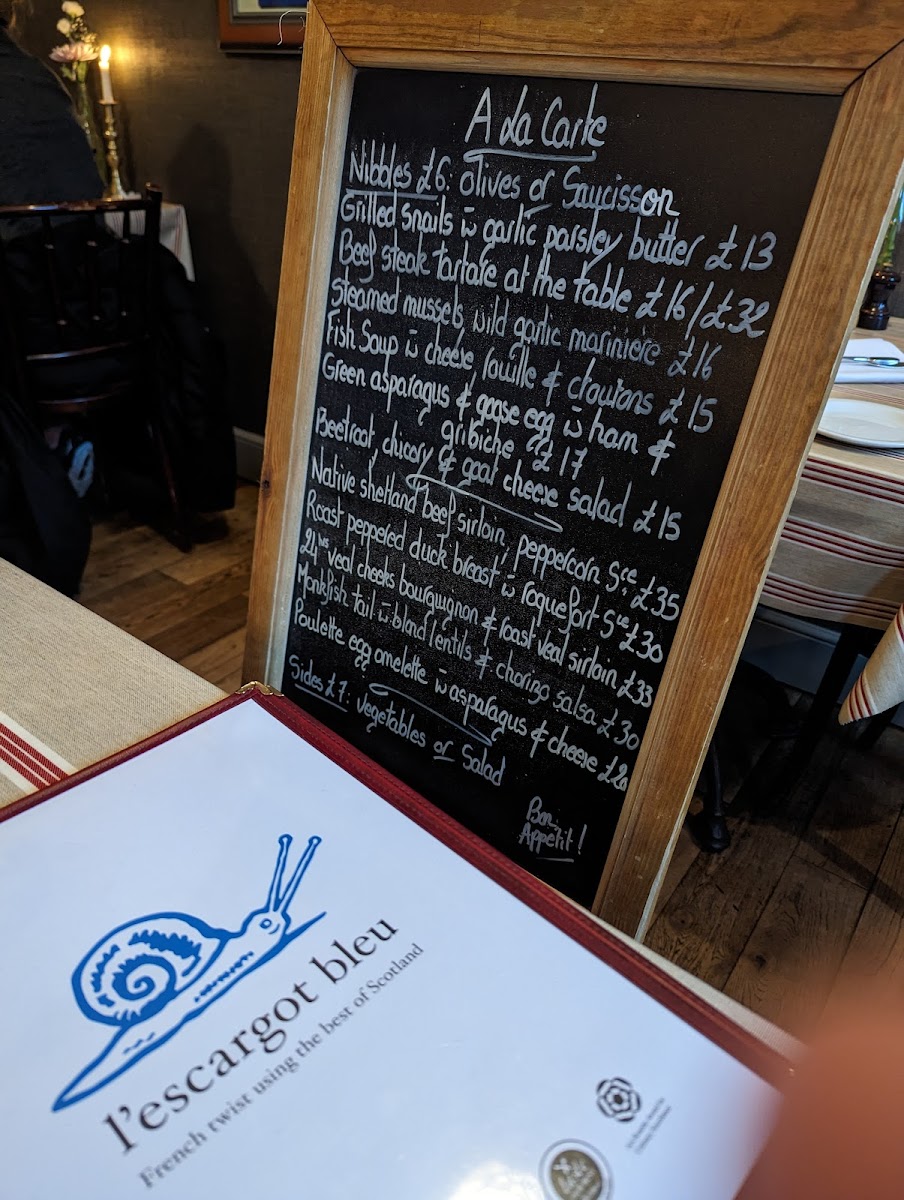 A La Carte
Nibbles £6: olives or Saucisson
Grilled Snails w̄ garlic parsley butter £13
Beef steak tartare at the table £16/£32
Steamed mussels, wild garlic marinière £16
Fish Soup w̄ cheese, rouille & croutons £15
Green asparagus & goose egg w̄ ham &
gribiche £17
Beetroot, chicory & goat cheese salad £15
Native shetland beef sirloin, peppercorn Sce £35
Roast peppered duck breast w̄ roquefort Sce £30
24hrs veal cheeks bourguignon & roast veal sirloin £33
Monkfish tail w̄ blond lentils & chorizo salsa £30
Poulette egg omelette w̄ asparagus & cheese £20
Sides £7: vegetables or Salad
Bon
Appétit!
l'escargot bleu
French twist using the best of Scotland